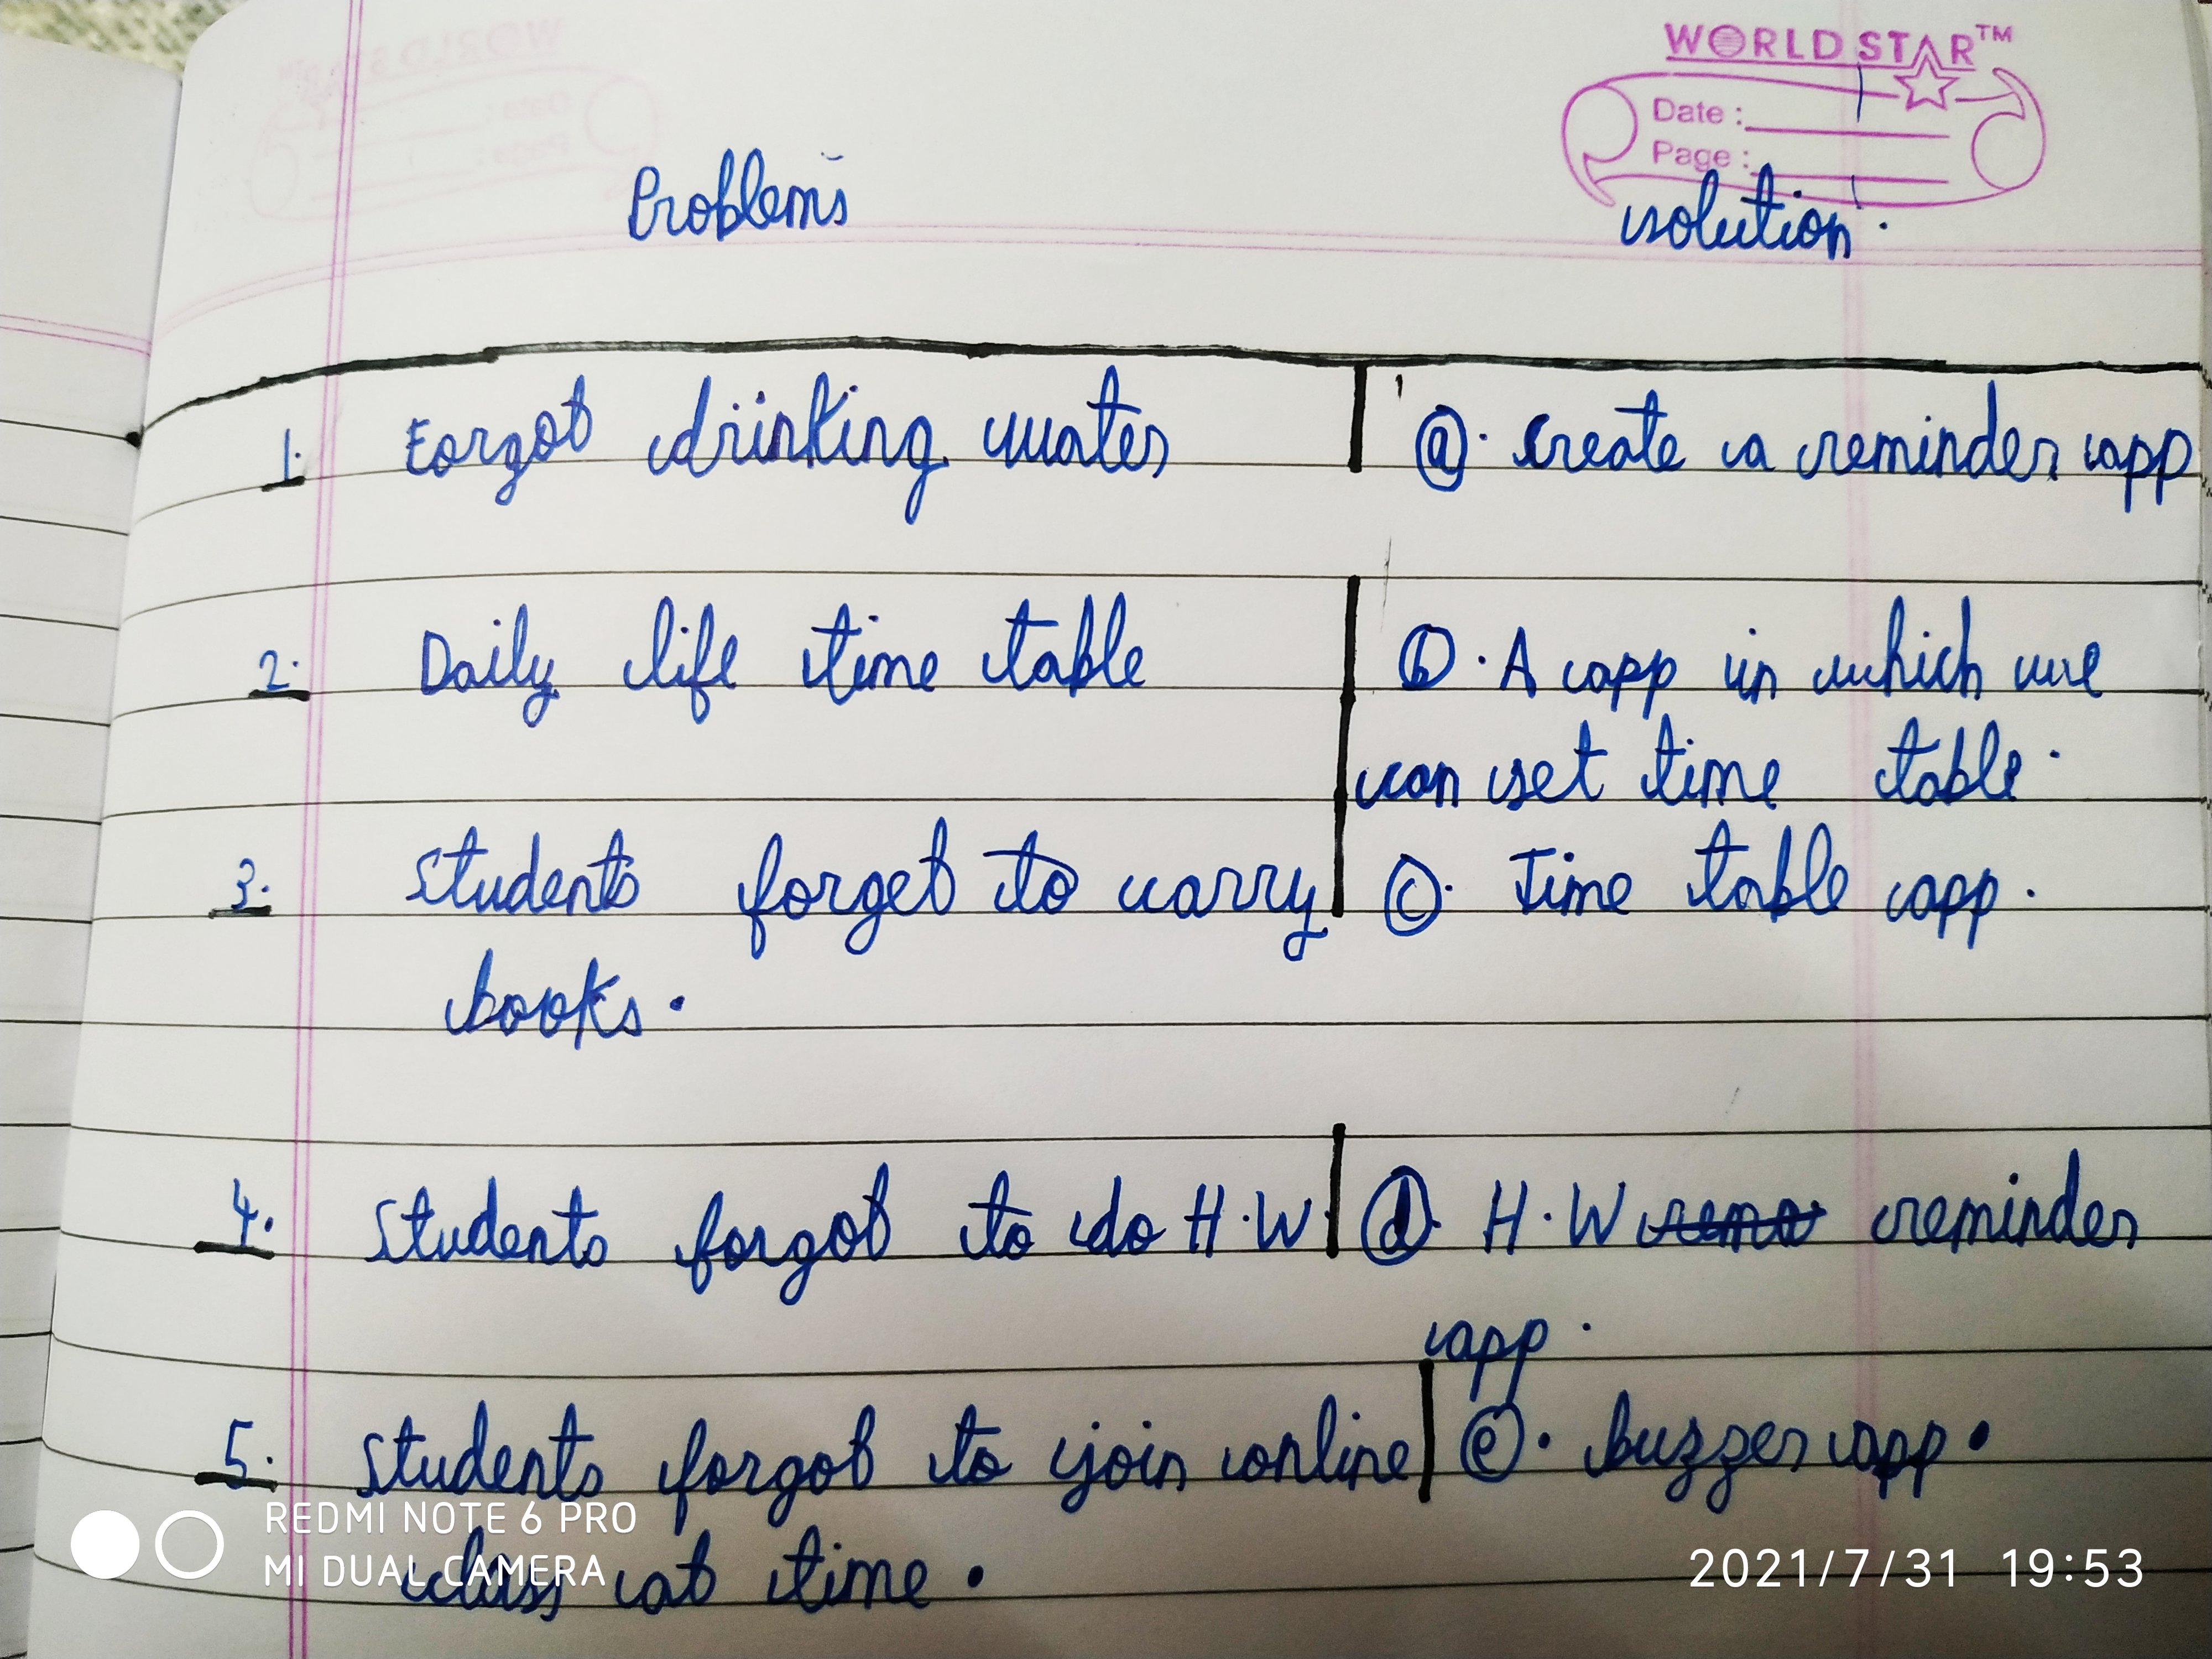 WORLD STAR™
Date :
Page :
Problems
solution.
1. Forgot drinking water
@. create a reminder app
2. Daily life time table
b. A app in which we
can set time table.
3. Students forget to carry
c. Time table app.
books.
4. Students forgot to do H.W.
d. H.W reminder
app.
5. Students forgot to join online
e. buzzer app.
class at time.
REDMI NOTE 6 PRO
MI DUAL CAMERA
2021/7/31 19:53